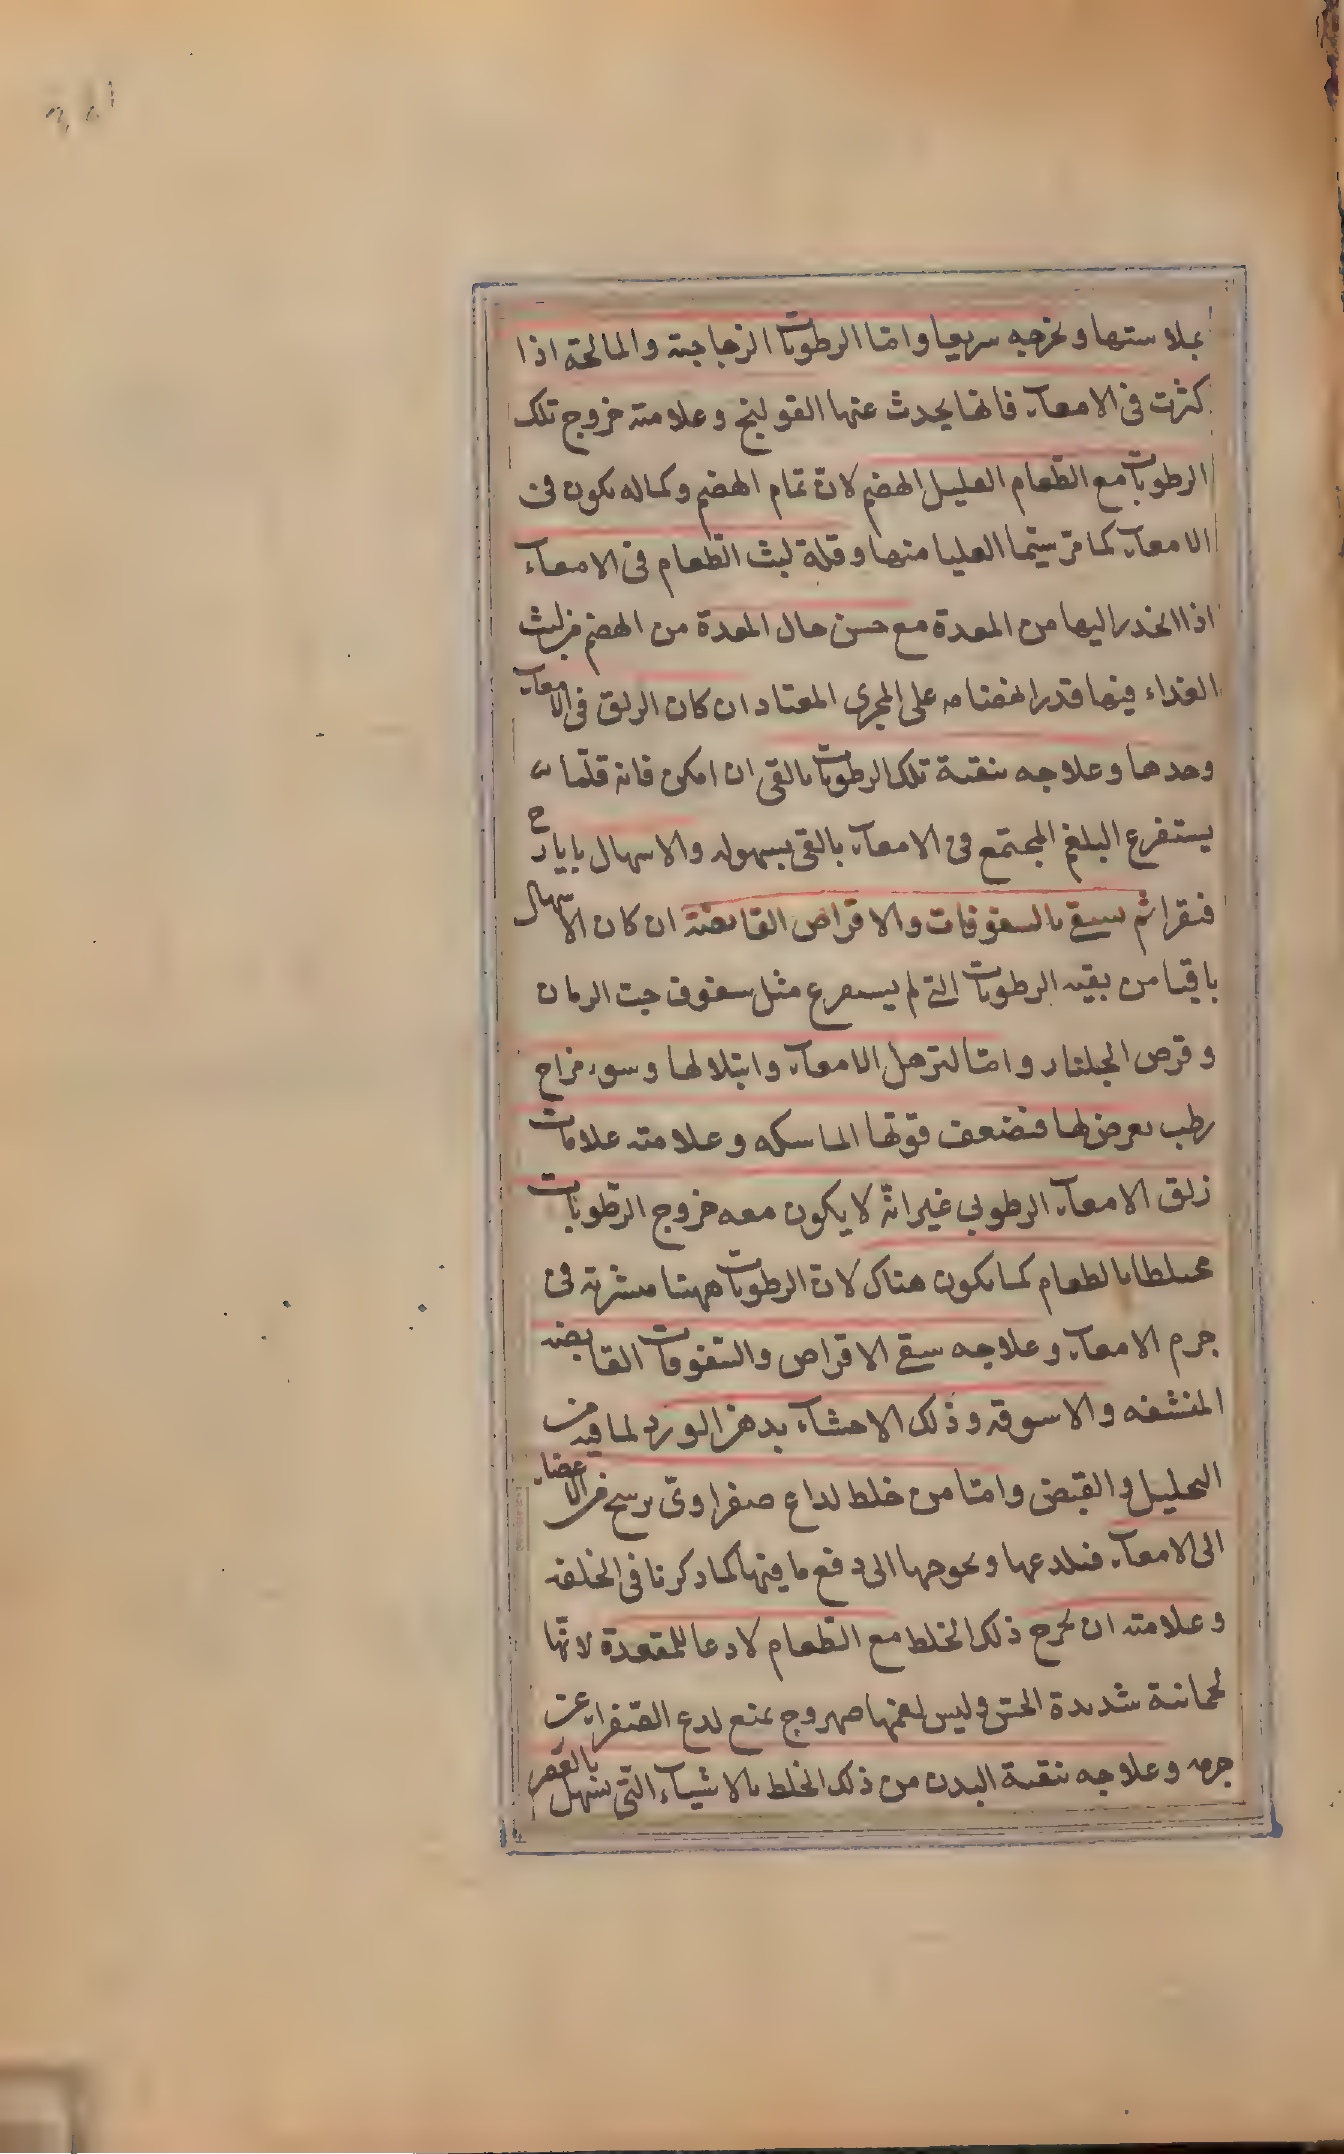 بملاستها ويخرجه سريعا واما الرطوبات الزجاجية والمالحة اذا
كثرت فى الامعاء فانها يحدث عنها القولنج وعلامته خروج تلك
الرطوبات مع الطعام القليل الهضم لان تمام الهضم وكماله يكون فى
الامعاء كما مرّ سيّما العليا منها وقلة لبث الطعام فى الامعاء
اذا انحدر اليها من المعدة مع حسن حال المعدة من الهضم من لبث
الغذاء فيها قدر انهضامه على المجرى المعتاد ان كان الزلق فى الامعاء
وحدها وعلاجه تنقية تلك الرطوبات بالقى ان امكن فانه قلّما
يستفرغ البلغم المجتمع فى الامعاء بالقى بسهوله والاسهال بايارج
فيقرا ثم يسقى بالسفوفات والاقراص القابضة ان كان الاسهال
باقيا من بقيه الرطوبات التى لم يستفرغ مثل سفوف حبّ الرمان
وقرص الجلنار وامّا لترهل الامعاء وابتلالها وسوء مزاج
رطب يعرض لها فيضعف قوتها الماسكه وعلامته علامات
زلق الامعاء الرطوبى غير انّه لا يكون معه خروج الرطوبات
مختلطا بالطعام كما يكون هناك لان الرطوبات ههنا متشربة فى
جرم الامعاء وعلاجه سقى الاقراص والسّفوفات القابضه
المنشفه والاسوقه وذلك الاحشاء بدهن الورد لما فيه من
التحليل والقبض وامّا من خلط لداع صفراوىّ يرسح من الاعضاء
الى الامعاء فيلدعها ويحوجها الى دفع ما فيها كما ذكرنا فى الخلفه
وعلامته ان يخرج ذلك الخلط مع الطعام لادعا للمقعدة لانّها
لحمانية شديدة الحسّ وليس لعمها صهروج يمنع لدع الصّفراء عن
جرمه وعلاجه تنقية البدن من ذلك الخلط بالاشياء التّى تسهل بالقصر